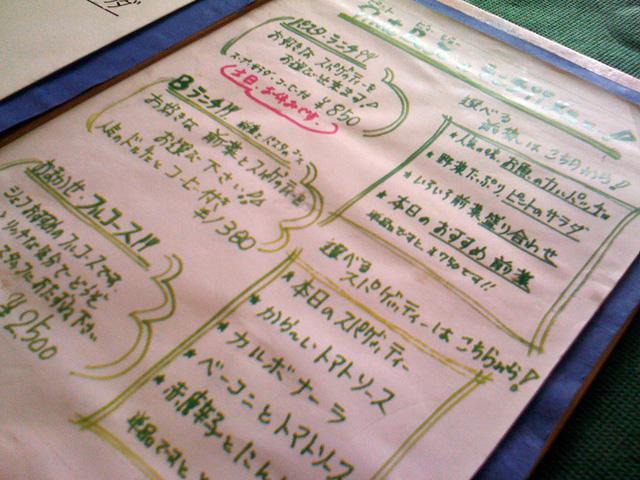 パスタランチ!!
お好きな スパゲティーを
お選び出来ます♪
¥850
土日、お休みです。
Bランチ!!
お好きな 前菜とスパゲティーを
お選び下さい!!
コーヒー付き
¥1380
おまかせ フルコース!!
シェフお約束の フルコースです
リッチな気分で どうぞ
スタッフにお尋ね下さい
¥2500
選べる
前菜は こちらから!
お魚のカルパッチョ
★野菜たっぷり ピリ辛サラダ
★いろいろ前菜盛り合わせ
★本日の おすすめ 前菜
単品ですと ¥750です!!
選べる
スパゲティーは こちらから!
★本日の スパゲティー
★からいトマトソース
★カルボナーラ
★ベーコンとトマトソース
★赤唐辛子とにん
単品ですと